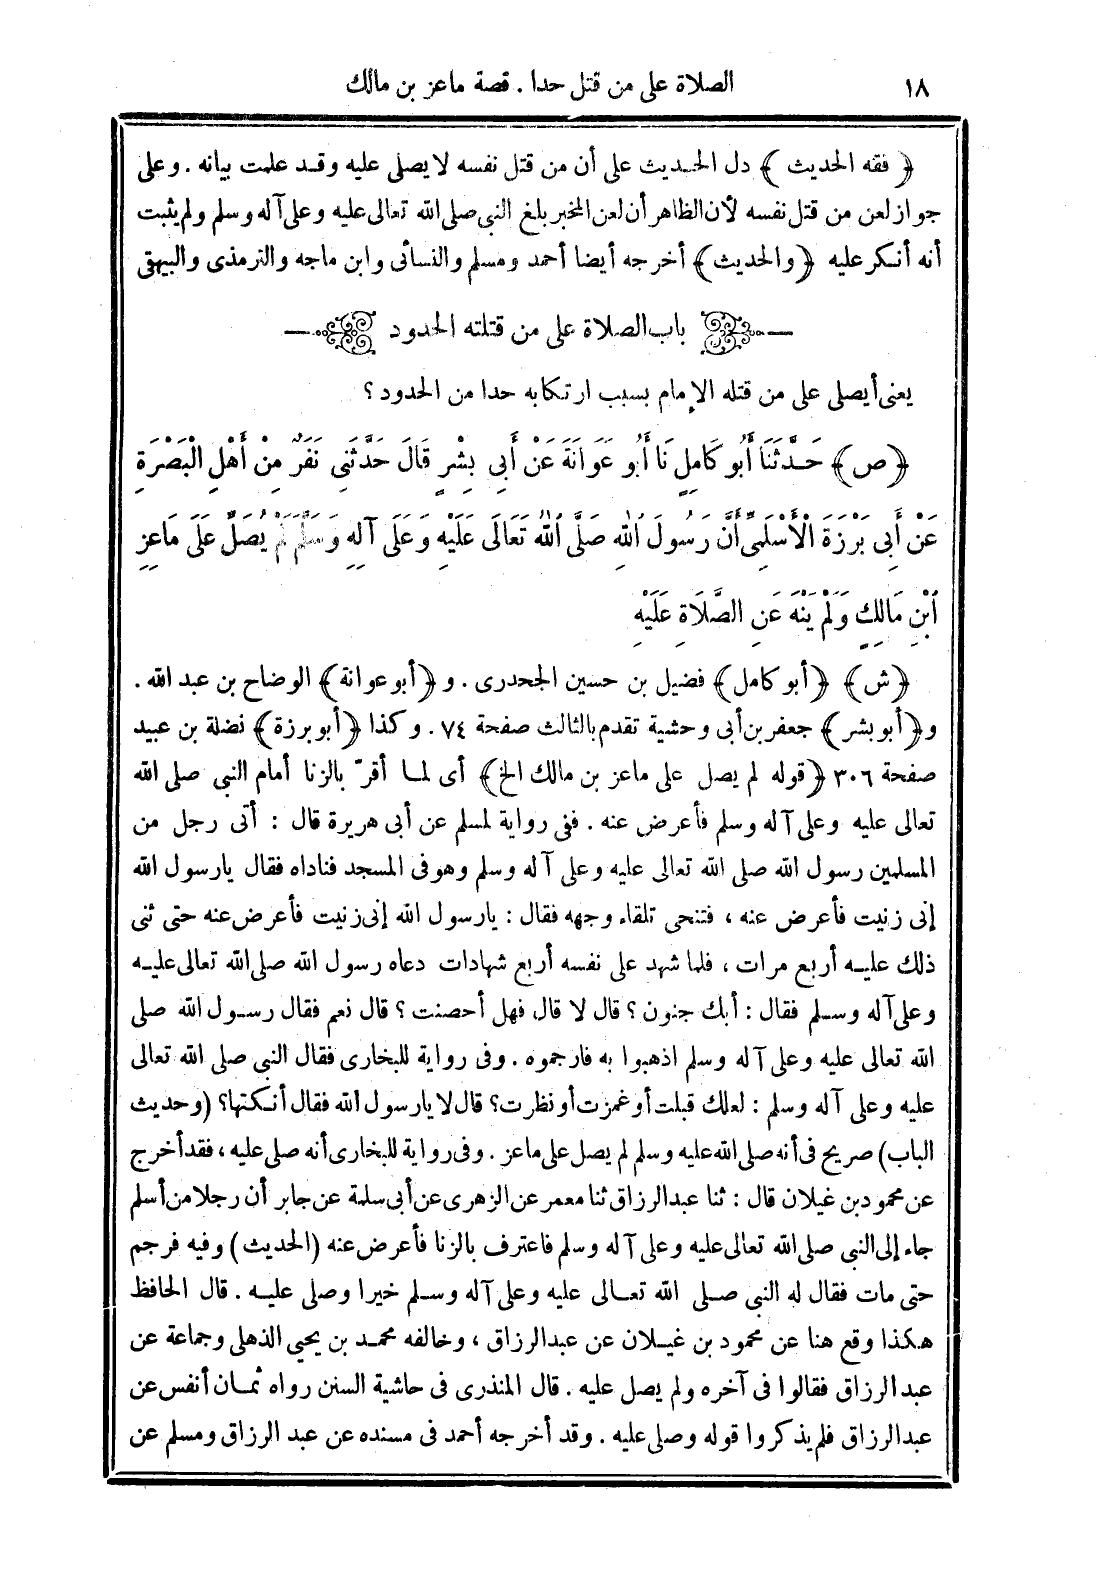 ١٨
الصلاة على من قتل حدا . قصة ماعز بن مالك
﴿ فقه الحديث ﴾ دل الحديث على أن من قتل نفسه لا يصلى عليه وقد علمت بيانه . وعلى
جواز لعن من قتل نفسه لأن الظاهر أن لعن المخبر بلغ النبى صلى الله تعالى عليه وعلى آله وسلم ولم يثبت
أنه أنكر عليه ﴿ والحديث ﴾ أخرجه أيضا أحمد ومسلم والنسائى وابن ماجه والترمذى والبيهقى
باب الصلاة على من قتلته الحدود
يعنى أيصلى على من قتله الإمام بسبب ارتكابه حدا من الحدود ؟
﴿ ص ﴾ حَدَّثَنَا أَبُو كَامِلٍ نَا أَبُو عَوَانَةَ عَنْ أَبِى بِشْرٍ قَالَ حَدَّثَنِى نَفَرٌ مِنْ أَهْلِ الْبَصْرَةِ
عَنْ أَبِى بَرْزَةَ الْأَسْلَمِىِّ أَنَّ رَسُولَ اللهِ صَلَّى اللهُ تَعَالَى عَلَيْهِ وَعَلَى آلِهِ وَسَلَّمَ لَمْ يُصَلِّ عَلَى مَاعِزِ
ابْنِ مَالِكٍ وَلَمْ يَنْهَ عَنِ الصَّلَاةِ عَلَيْهِ
﴿ ش ﴾ ﴿ أبو كامل ﴾ فضيل بن حسين الجحدرى . و ﴿ أبو عوانة ﴾ الوضاح بن عبد الله .
و ﴿ أبو بشر ﴾ جعفر بن أبى وحشية تقدم بالثالث صفحة ٧٤ . وكذا ﴿ أبو برزة ﴾ نضلة بن عبيد
صفحة ٣٠٦ ﴿ قوله لم يصل على ماعز بن مالك الخ ﴾ أى لما أقرّ بالزنا أمام النبى صلى الله
تعالى عليه وعلى آله وسلم فأعرض عنه . ففى رواية لمسلم عن أبى هريرة قال : أتى رجل من
المسلمين رسول الله صلى الله تعالى عليه وعلى آله وسلم وهو فى المسجد فناداه فقال يارسول الله
إنى زنيت فأعرض عنه ، فتنحى تلقاء وجهه فقال : يارسول الله إنى زنيت فأعرض عنه حتى ثنى
ذلك عليه أربع مرات ، فلما شهد على نفسه أربع شهادات دعاه رسول الله صلى الله تعالى عليه
وعلى آله وسلم فقال : أبك جنون ؟ قال لا قال، فهل أحصنت ؟ قال نعم فقال رسول الله صلى
الله تعالى عليه وعلى آله وسلم اذهبوا به فارجموه . وفى رواية للبخارى فقال النبى صلى الله تعالى
عليه وعلى آله وسلم : لعلك قبلت أو غمزت أو نظرت ؟ قال لا يارسول الله فقال أنكتها ؟ (وحديث
الباب) صريح فى أنه صلى الله عليه وسلم لم يصل على ماعز . وفى رواية للبخارى أنه صلى عليه ، فقد أخرج
عن محمود بن غيلان قال : ثنا عبد الرزاق ثنا معمر عن الزهرى عن أبى سلمة عن جابر أن رجلا من أسلم
جاء إلى النبى صلى الله تعالى عليه وعلى آله وسلم فاعترف بالزنا فأعرض عنه (الحديث) وفيه فرجم
حتى مات فقال له النبى صلى الله تعالى عليه وعلى آله وسلم خيرا وصلى عليه . قال الحافظ
هكذا وقع هنا عن محمود بن غيلان عن عبد الرزاق ، وخالفه محمد بن يحيى الذهلى وجماعة عن
عبد الرزاق فقالوا فى آخره ولم يصل عليه . قال المنذرى فى حاشية السنن رواه ثمان أنفس عن
عبد الرزاق فلم يذكروا قوله وصلى عليه . وقد أخرجه أحمد فى مسنده عن عبد الرزاق ومسلم عن